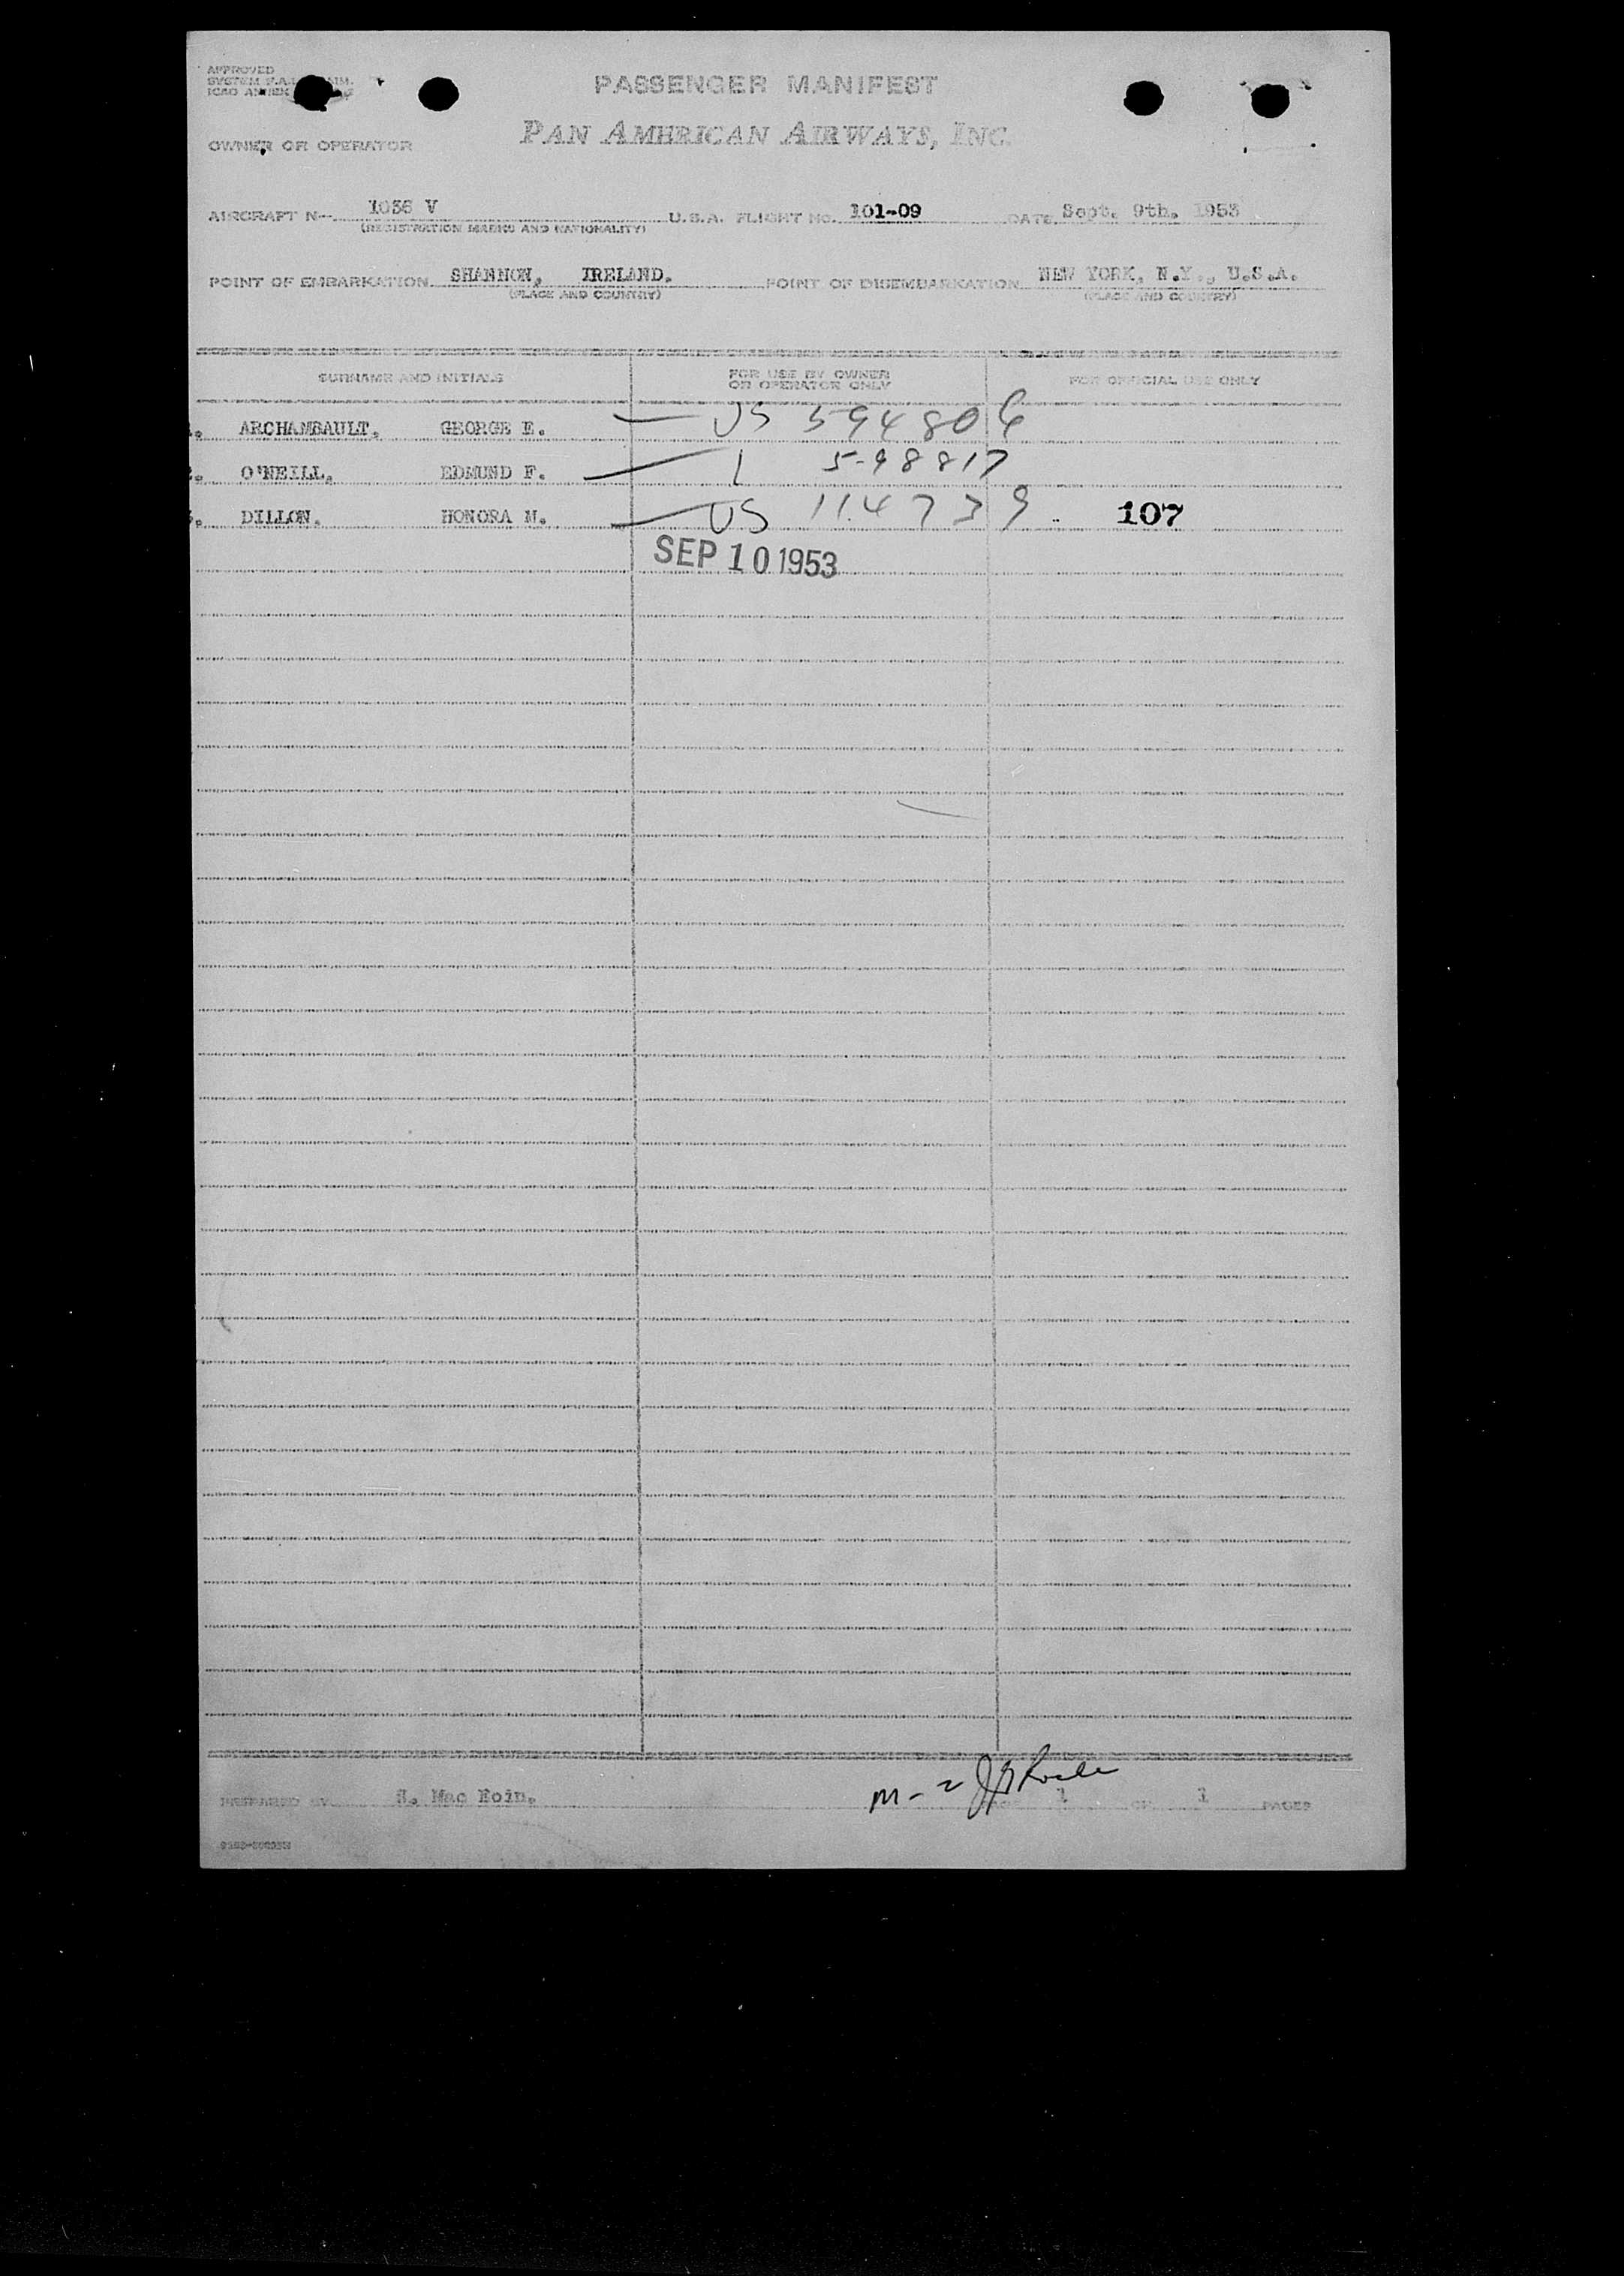 APPROVED
PASSENGER MANIFEST
PAN AMERICAN AIRWAYS, INC.
OWNER OR OPERATOR
AIRCRAFT N-- 1036 V U.S.A. FLIGHT NO. 101-09 DATE Sept. 9th. 1953
(REGISTRATION MARKS AND NATIONALITY)
POINT OF EMBARKATION SHANNON, IRELAND. POINT OF DISEMBARKATION NEW YORK, N.Y., U.S.A.
(PLACE AND COUNTRY) (PLACE AND COUNTRY)
SURNAME AND INITIALS FOR USE BY OWNER OR OPERATOR ONLY FOR OFFICIAL USE ONLY
ARCHAMBAULT, GEORGE E. US 594806
O'NEILL, EDMUND F. 598817
DILLON. HONORA M. US 114739 107
SEP 10 1953
PREPARED BY S. Mac Eoin. M-2 PAGE 1 OF 1 PAGES